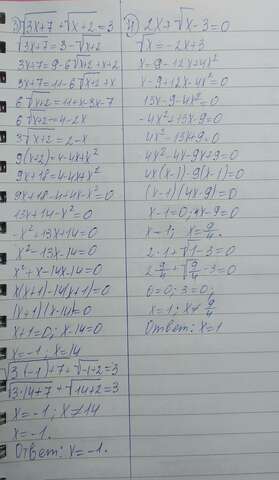 3) √3x+7 + √x+2 = 3
√3x+7 = 3 - √x+2
3x+7 = 9 - 6√x+2 + x+2
3x+7 = 11 - 6√x+2 + x
6√x+2 = 11 + x - 3x - 7
6√x+2 = 4 - 2x
3√x+2 = 2 - x
9(x+2) = 4 - 4x + x²
9x + 18 = 4 - 4x + x²
9x + 18 - 4 + 4x - x² = 0
13x + 14 - x² = 0
-x² + 13x + 14 = 0
x² - 13x - 14 = 0
x² + x - 14x - 14 = 0
x(x+1) - 14(x+1) = 0
(x+1)(x-14) = 0
x+1=0; x-14=0
x=-1; x=14
√3·(-1)+7 + √-1+2 = 3
√3·14+7 + √14+2 = 3
x=-1; x≠14
x=-1.
Ответ: x=-1.
4) 2x + √x - 3 = 0
√x = -2x + 3
x = 9 - 12x + 4x²
x - 9 + 12x - 4x² = 0
13x - 9 - 4x² = 0
-4x² + 13x - 9 = 0
4x² - 13x + 9 = 0
4x² - 4x - 9x + 9 = 0
4x(x-1) - 9(x-1) = 0
(x-1)(4x-9) = 0
x-1=0; 4x-9=0
x=1; x=9/4
2·1 + √1 - 3 = 0
2·9/4 + √9/4 - 3 = 0
0=0; 3=0;
x=1; x≠9/4
Ответ: x=1